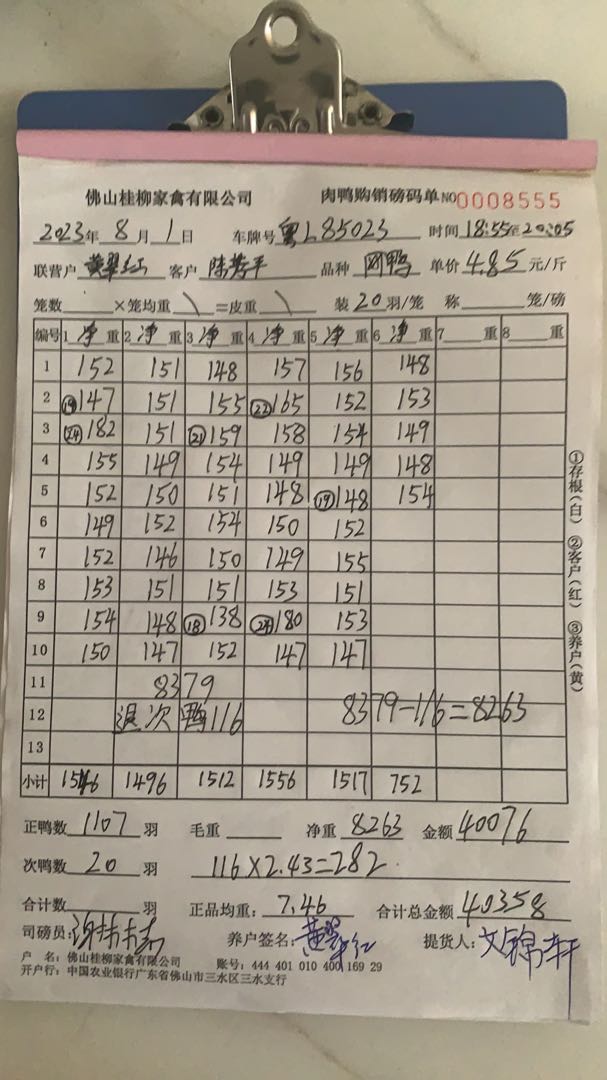 佛山桂柳家禽有限公司 肉鸭购销磅码单 NO 0008555
2023年 8月 1日 车牌号 粤L85023 时间 18:55至20:05
联营户 黄翠红 客户 陈秀平 品种 网鸭 单价 4.85 元/斤
笼数 ×笼均重 \ =皮重 \ 装 20 羽/笼 称 笼/磅
编号 1 净 重 2 净 重 3 净 重 4 净 重 5 净 重 6 净 重 7 重 8 重
1 152 151 148 157 156 148
2 ⑲147 151 155 ㉒165 152 153
3 ㉔182 151 ㉑159 158 154 149
4 155 149 154 149 149 148
5 152 150 151 148 ⑲148 154
6 149 152 154 150 152
7 152 146 150 149 155
8 153 151 151 153 151
9 154 148 ⑱138 ㉔180 153
10 150 147 152 147 147
11 8379
12 退次鸭116 8379-116=8263
13
小计 1546 1496 1512 1556 1517 752
正鸭数 1107 羽 毛重 净重 8263 金额 40076
次鸭数 20 羽 116×2.43=282.
合计数 羽 正品均重: 7.46 合计总金额 40358
司磅员: 养户签名: 黄翠红 提货人: 文锦轩
户 名: 佛山桂柳家禽有限公司 账号: 444 401 010 400 169 29
开户行: 中国农业银行广东省佛山市三水区三水支行
①存根(白) ②客户(红) ③养户(黄)